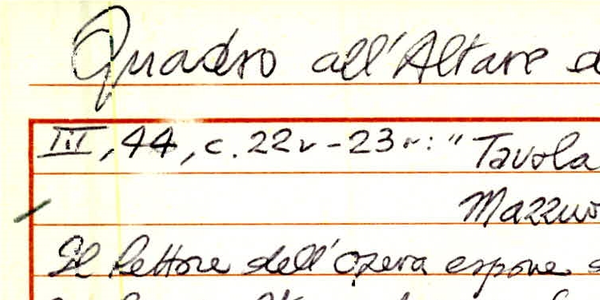 Quadro all'Altare d
III, 44, c. 22v-23r: "Tavola
Mazzuo
Il lettore dell'opera espone s